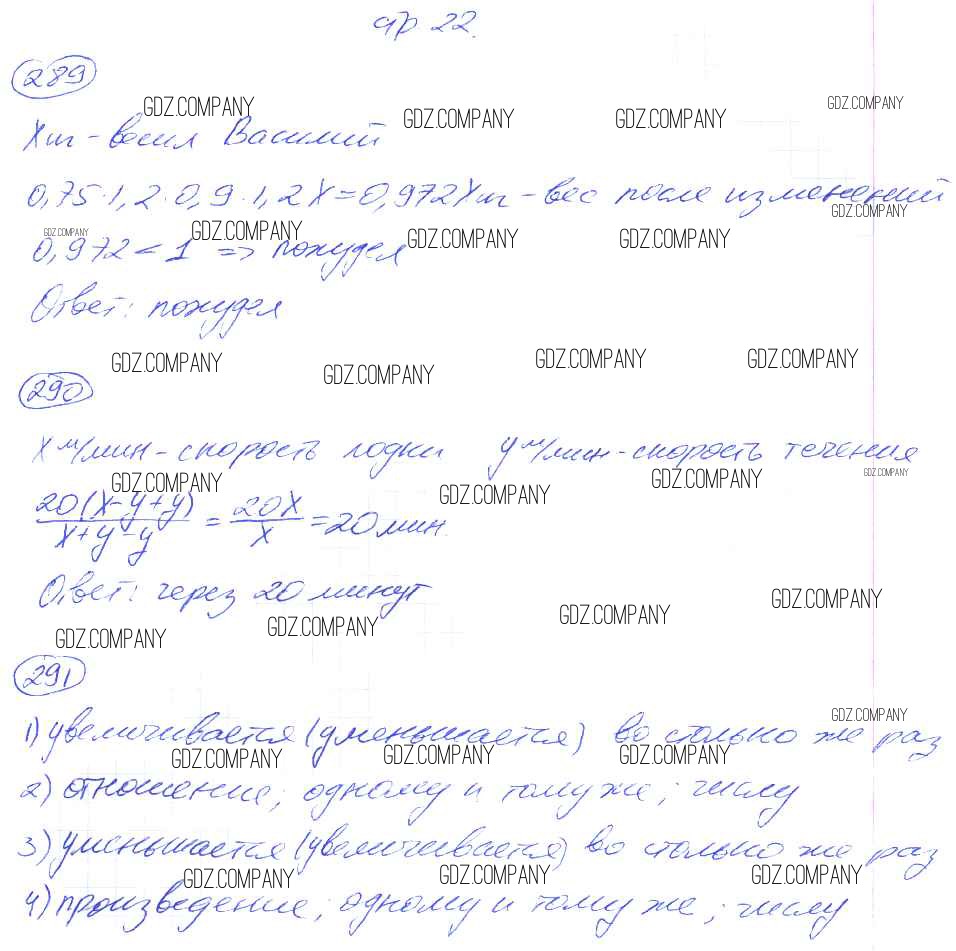 стр 22.
289
GDZ.COMPANY GDZ.COMPANY GDZ.COMPANY GDZ.COMPANY
X кг - весил Василий
0,75·1,2·0,9·1,2X=0,972X кг - вес после изменений
GDZ.COMPANY GDZ.COMPANY GDZ.COMPANY GDZ.COMPANY GDZ.COMPANY
0,972 < 1 => похудел
Ответ: похудел
GDZ.COMPANY GDZ.COMPANY GDZ.COMPANY GDZ.COMPANY
290
X м/мин - скорость лодки y м/мин - скорость течения
GDZ.COMPANY GDZ.COMPANY GDZ.COMPANY GDZ.COMPANY
20(x-y+y)/x+y-y = 20x/x = 20 мин.
Ответ: через 20 минут
GDZ.COMPANY GDZ.COMPANY GDZ.COMPANY GDZ.COMPANY
291
1) увеличивается (уменьшается) во столько же раз
GDZ.COMPANY GDZ.COMPANY GDZ.COMPANY GDZ.COMPANY
2) отношение; одному и тому же; числу
3) уменьшается (увеличивается) во столько же раз
GDZ.COMPANY GDZ.COMPANY GDZ.COMPANY
4) произведение; одному и тому же; числу